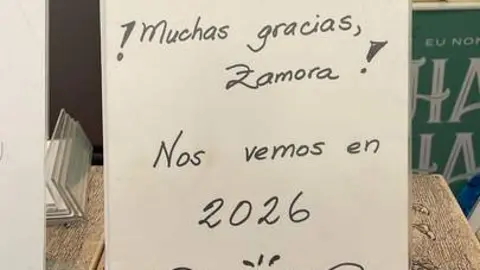 !Muchas gracias,
Zamora!
Nos vemos en
2026
EU NON